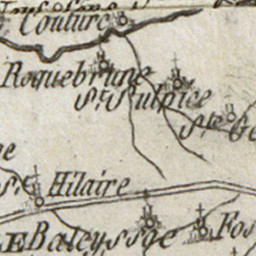 Couture
Roquebrune
St. Sulpice
Ste Ge
St. Hilaire
Baleyssae
Fos